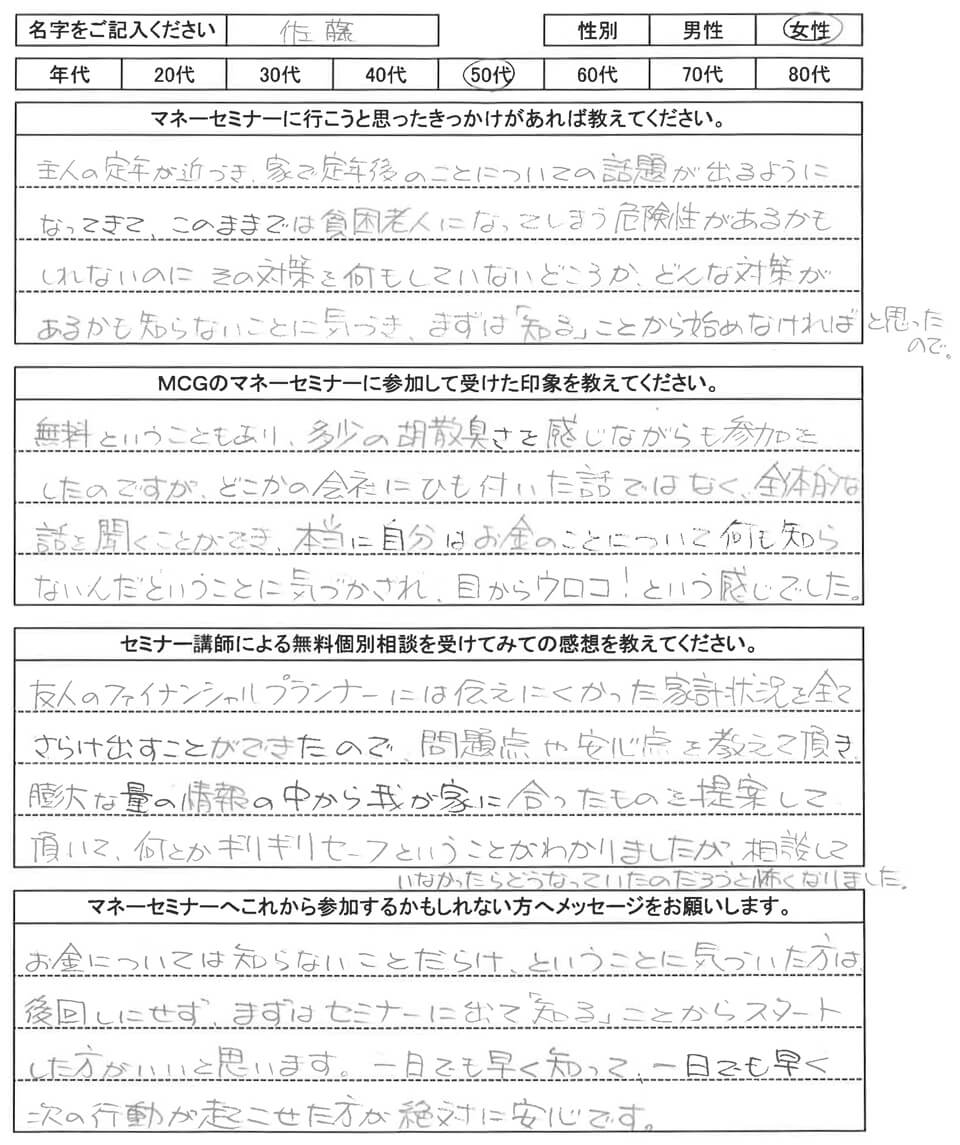 名字をご記入ください 佐藤 性別 男性 女性
年代 20代 30代 40代 50代 60代 70代 80代
マネーセミナーに行こうと思ったきっかけがあれば教えてください。
主人の定年が近づき、家で定年後のことについての話題が出るように
なってきて、このままでは貧困老人になってしまう危険性があるかも
しれないのに その対策を何もしていないどころか、どんな対策が
あるかも知らないことに気づき、まずは「知る」ことから始めなければと思った
ので。
MCGのマネーセミナーに参加して受けた印象を教えてください。
無料ということもあり、多少の胡散臭さを感じながらも参加を
したのですが、どこかの会社にひも付いた話ではなく、全体的な
話を聞くことができ、本当に自分はお金のことについて何も知ら
ないんだということに気づかされ、目からウロコ!という感じでした。
セミナー講師による無料個別相談を受けてみての感想を教えてください。
友人のファイナンシャルプランナーには伝えにくかった家計状況を全て
さらけ出すことができたので、問題点や安心点を教えて頂き、
膨大な量の情報の中から我が家に合ったものを提案して
頂いて、何とかギリギリセーフということがわかりましたが、相談して
いなかったらどうなっていたのだろうと怖くなりました。
マネーセミナーへこれから参加するかもしれない方へメッセージをお願いします。
お金については知らないことだらけ、ということに気づいた方は、
後回しにせず、まずはセミナーに出て「知る」ことからスタート
した方がいいと思います。一日でも早く知って、一日でも早く
次の行動が起こせた方が絶対に安心です。